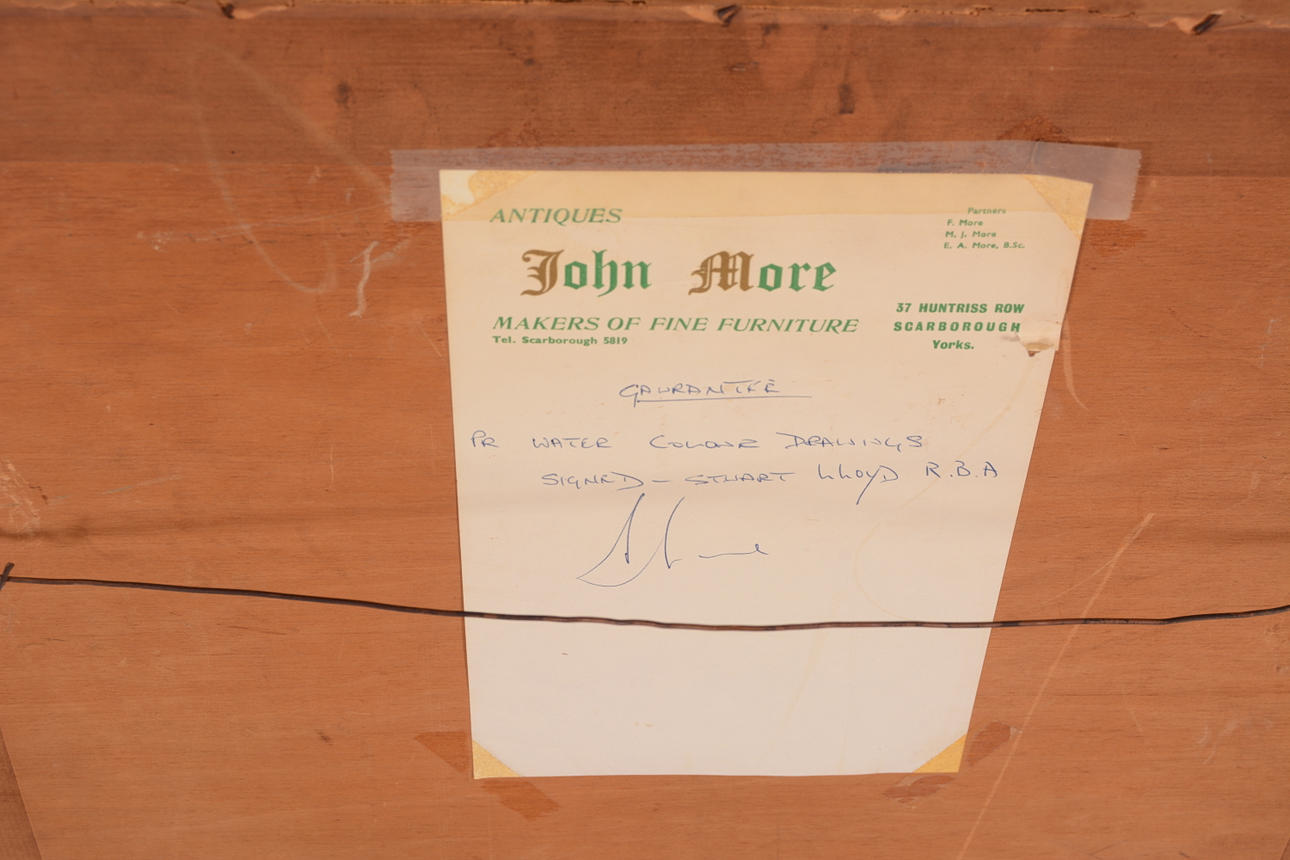 ANTIQUES
Partners
F. More
M. J. More
E. A. More, B.Sc.
John More
MAKERS OF FINE FURNITURE
Tel. Scarborough 5819
37 HUNTRISS ROW
SCARBOROUGH
Yorks.
GAURANTEE
PR WATER COLOUR DRAWINGS
SIGNED - STUART LLOYD R.B.A